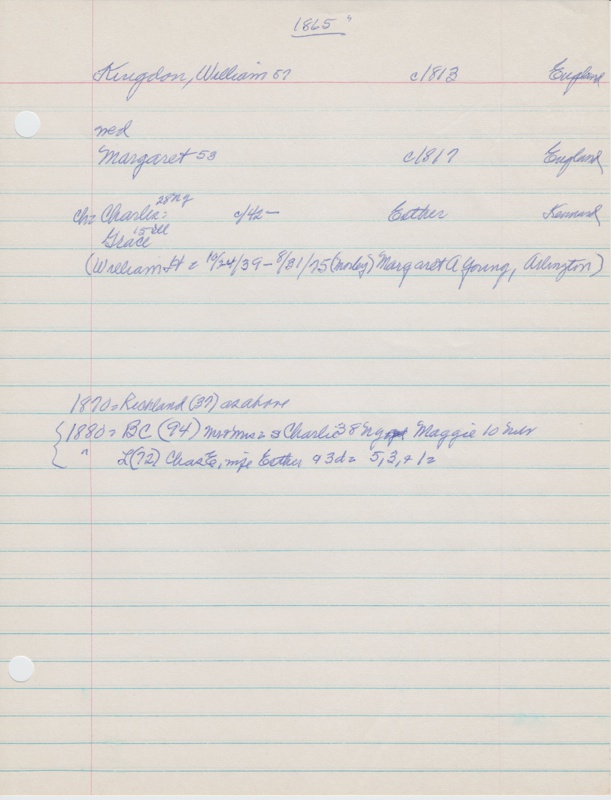 1865 "
Kingdon, William 57 c/1813 England
med
Margaret 53 c/1817 England
28 Ng
ch= Charlie: c/42- Esther Kennard
15 Ill
Grace
(William H = 10/24/39 - 8/31/75 (Mosley) Margaret A Young, Arlington)
1870= Richland (37) as above
{ 1880= BC (94) Mr & Mrs = s Charlie 38 Ng Maggie 10
" L(72) Chas E, wife Esther & 3d = 5, 3, + 1=